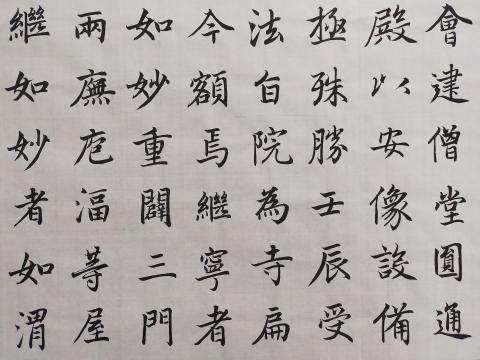 會建僧堂圓通
殿以安像設備
極殊勝壬辰受
法自院為寺扁
今額焉繼寧者
如妙重闢三門
兩廡庖湢等屋
繼如妙者如渭